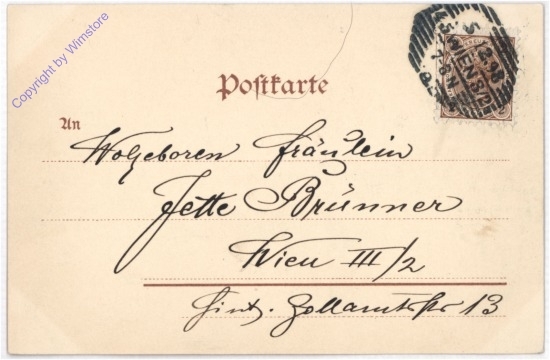 Copyright by Wimstore
Postkarte
An
Wolgeboren Fräulein
Jette Brünner
Wien III/2
Hint. Zollamtsstr 13